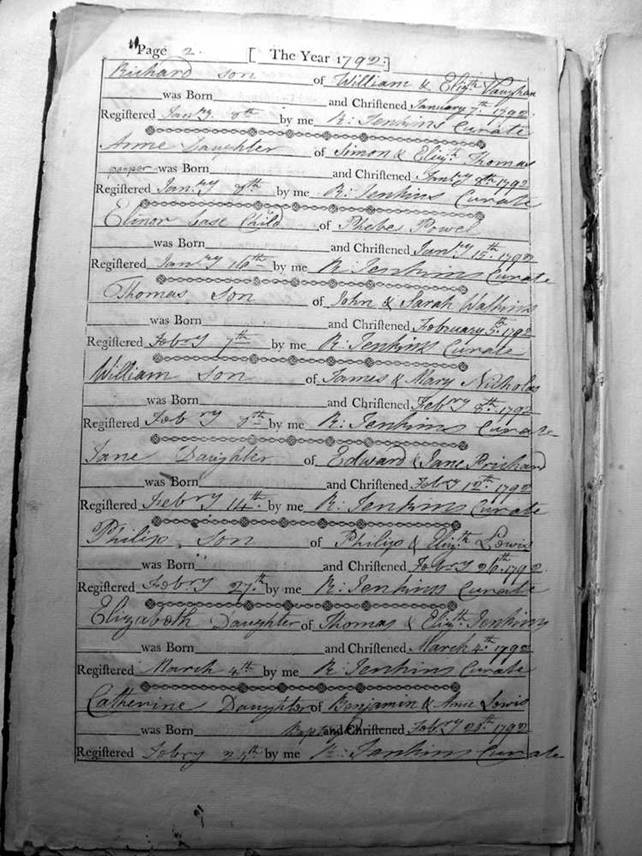 Page 2. [ The Year 1792. ]
Richard son of William & Elizth Vaughan
was Born and Chriſtened January 7th 1792
Regiſtered Janry 8th by me R: Jenkins Curate
Anne Daughter of Simon & Elizth Thomas
pauper was Born and Chriſtened Janry 8th 1792
Regiſtered Janry 8th by me R: Jenkins Curate
Elinor base Child of Phebe Powel
was Born and Chriſtened Janry 15th 1792
Regiſtered Janry 16th by me R: Jenkins Curate
Thomas Son of John & Sarah Watkins
was Born and Chriſtened February 5th 1792
Regiſtered Febry 7th by me R: Jenkins Curate
William Son of James & Mary Nicholas
was Born and Chriſtened Febry 8th 1792
Regiſtered Febry 8th by me R: Jenkins Curate
Jane Daughter of Edward & Jane Prichard
was Born and Chriſtened Febry 12th 1792
Regiſtered Febry 14th by me R: Jenkins Curate
Philip Son of Philip & Elizth Lewis
was Born and Chriſtened Febry 26th 1792
Regiſtered Febry 27th by me R: Jenkins Curate
Elizabeth Daughter of Thomas & Elizth Jenkins
was Born and Chriſtened March 4th 1792
Regiſtered March 4th by me R: Jenkins Curate
Catherine Daughter of Benjamin & Anne Lewis
was Born and Chriſtened Febry 28th 1792
Regiſtered Febry by me R: Jenkins Curate